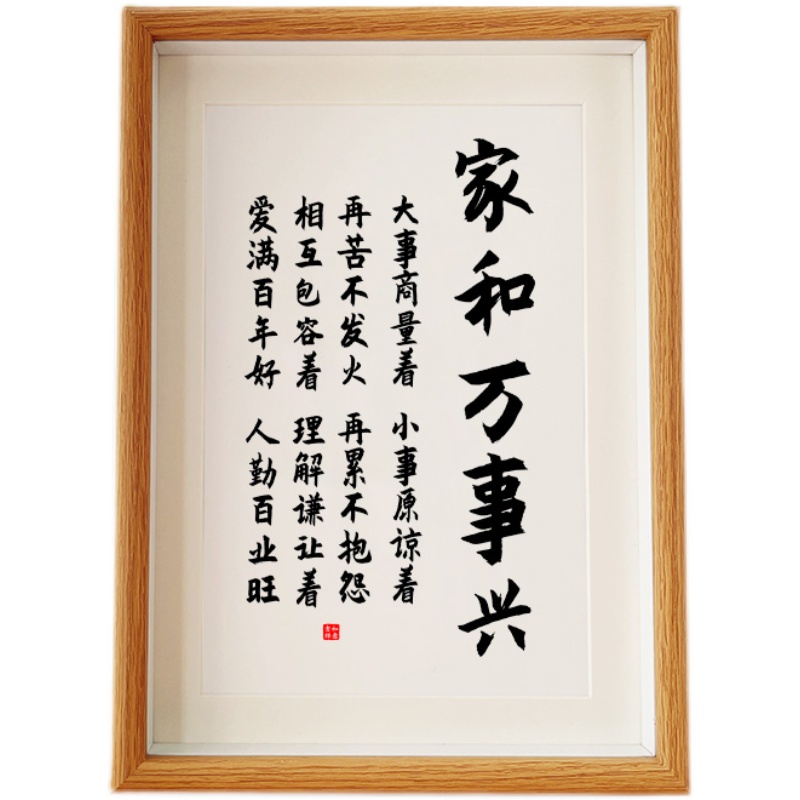 家和万事兴
大事商量着 小事原谅着
再苦不发火 再累不抱怨
相互包容着 理解谦让着
爱满百年好 人勤百业旺